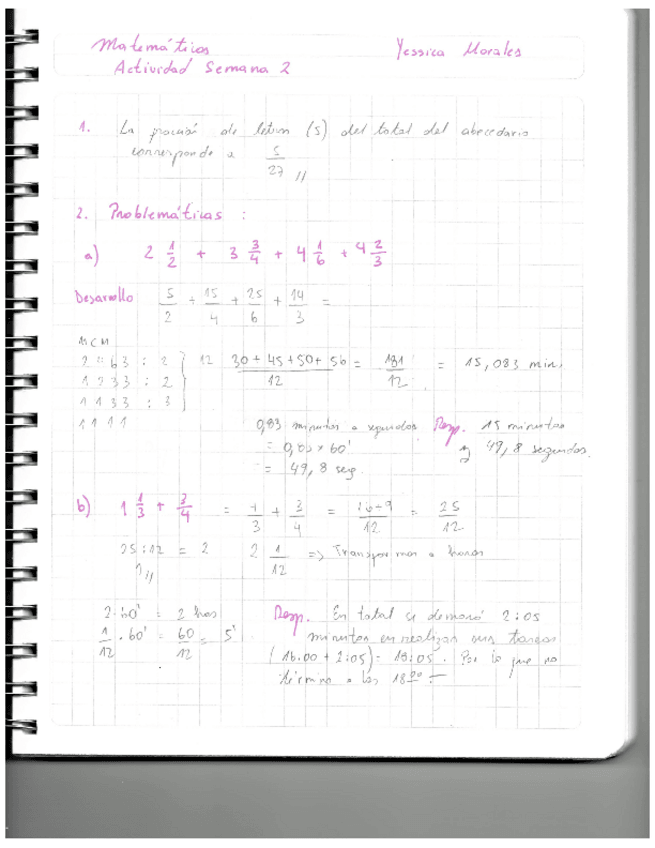 Matemáticas Yessica Morales
Actividad Semana 2
1. La de letras (5) del total del abecedario
corresponde a 5/27 //
2. Problemáticas :
a) 2 1/2 + 3 3/4 + 4 1/6 + 4 2/3
Desarrollo 5/2 + 15/4 + 25/6 + 14/3 =
MCM
2 4 6 3 : 2 } 12 (30 + 45 + 50 + 56)/12 = 181/12 = 15,083 min,
1 2 3 3 : 2
1 1 3 3 : 3
1 1 1 1
0,83 minutos a segundos Resp. 15 minutos
= 0,83 x 60' 49,8 segundos.
= 49,8 seg.
b) 1 1/3 + 3/4 = 4/3 + 3/4 = (16+9)/12 = 25/12
25 : 12 = 2 2 1/12 => Transformar a horas
1 //
2 · 60' = 2 hrs Resp. En total se demoró 2:05
1/12 · 60' = 60/12 = 5' minutos en realizar sus tareas
(16:00 + 2:05) = 18:05. Por lo que no
término a las 18:00